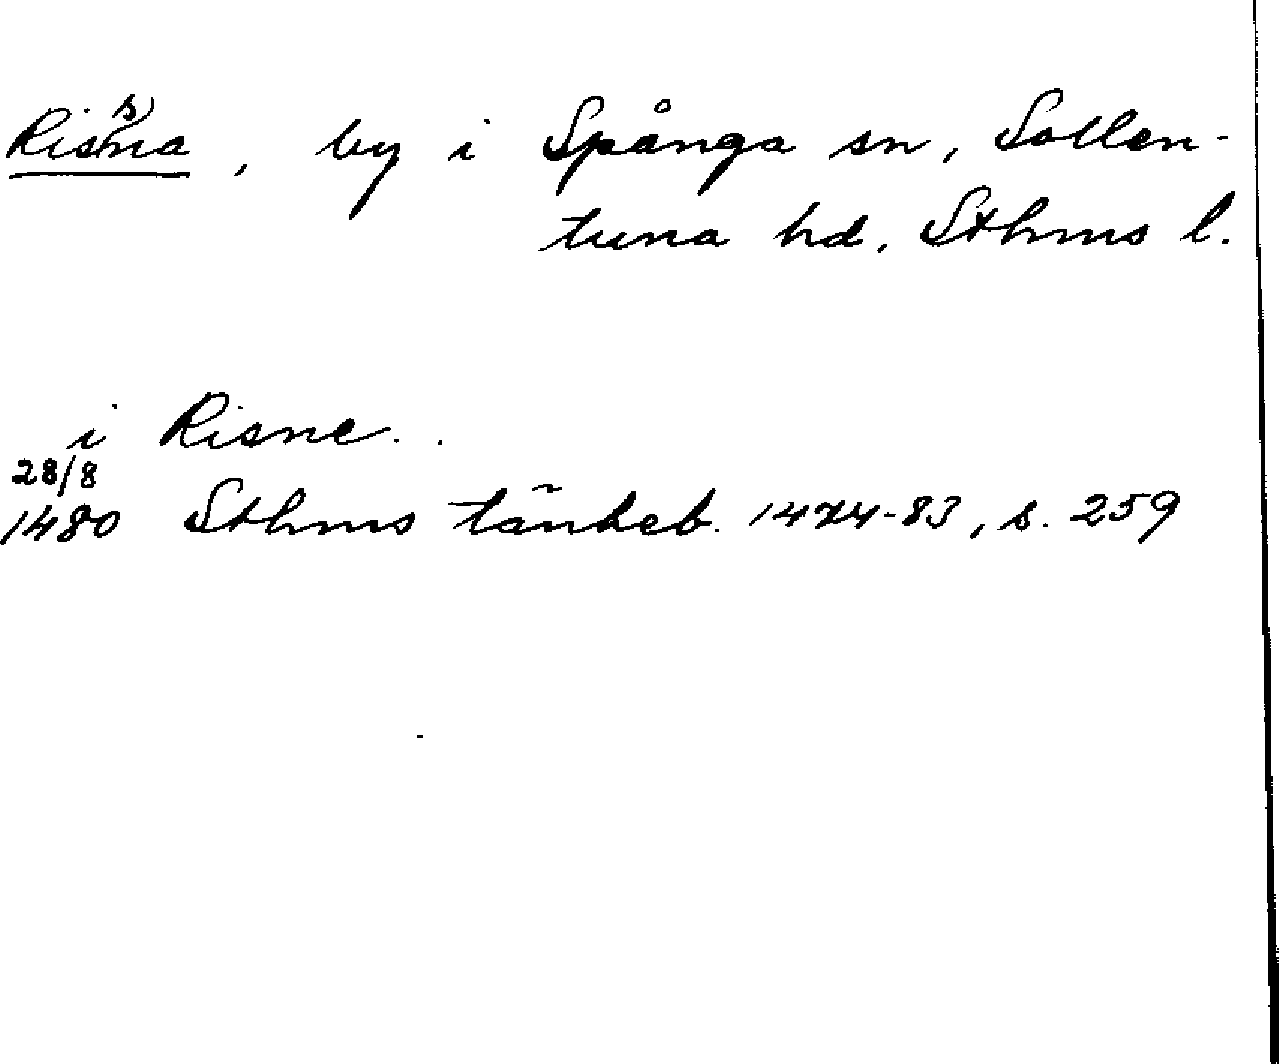 Rissna, by i Spånga sn, Sollen-
tuna hd, Sthms l.
i Risne..
28/8
1480 Sthms tänkeb. 1474-83, s. 259